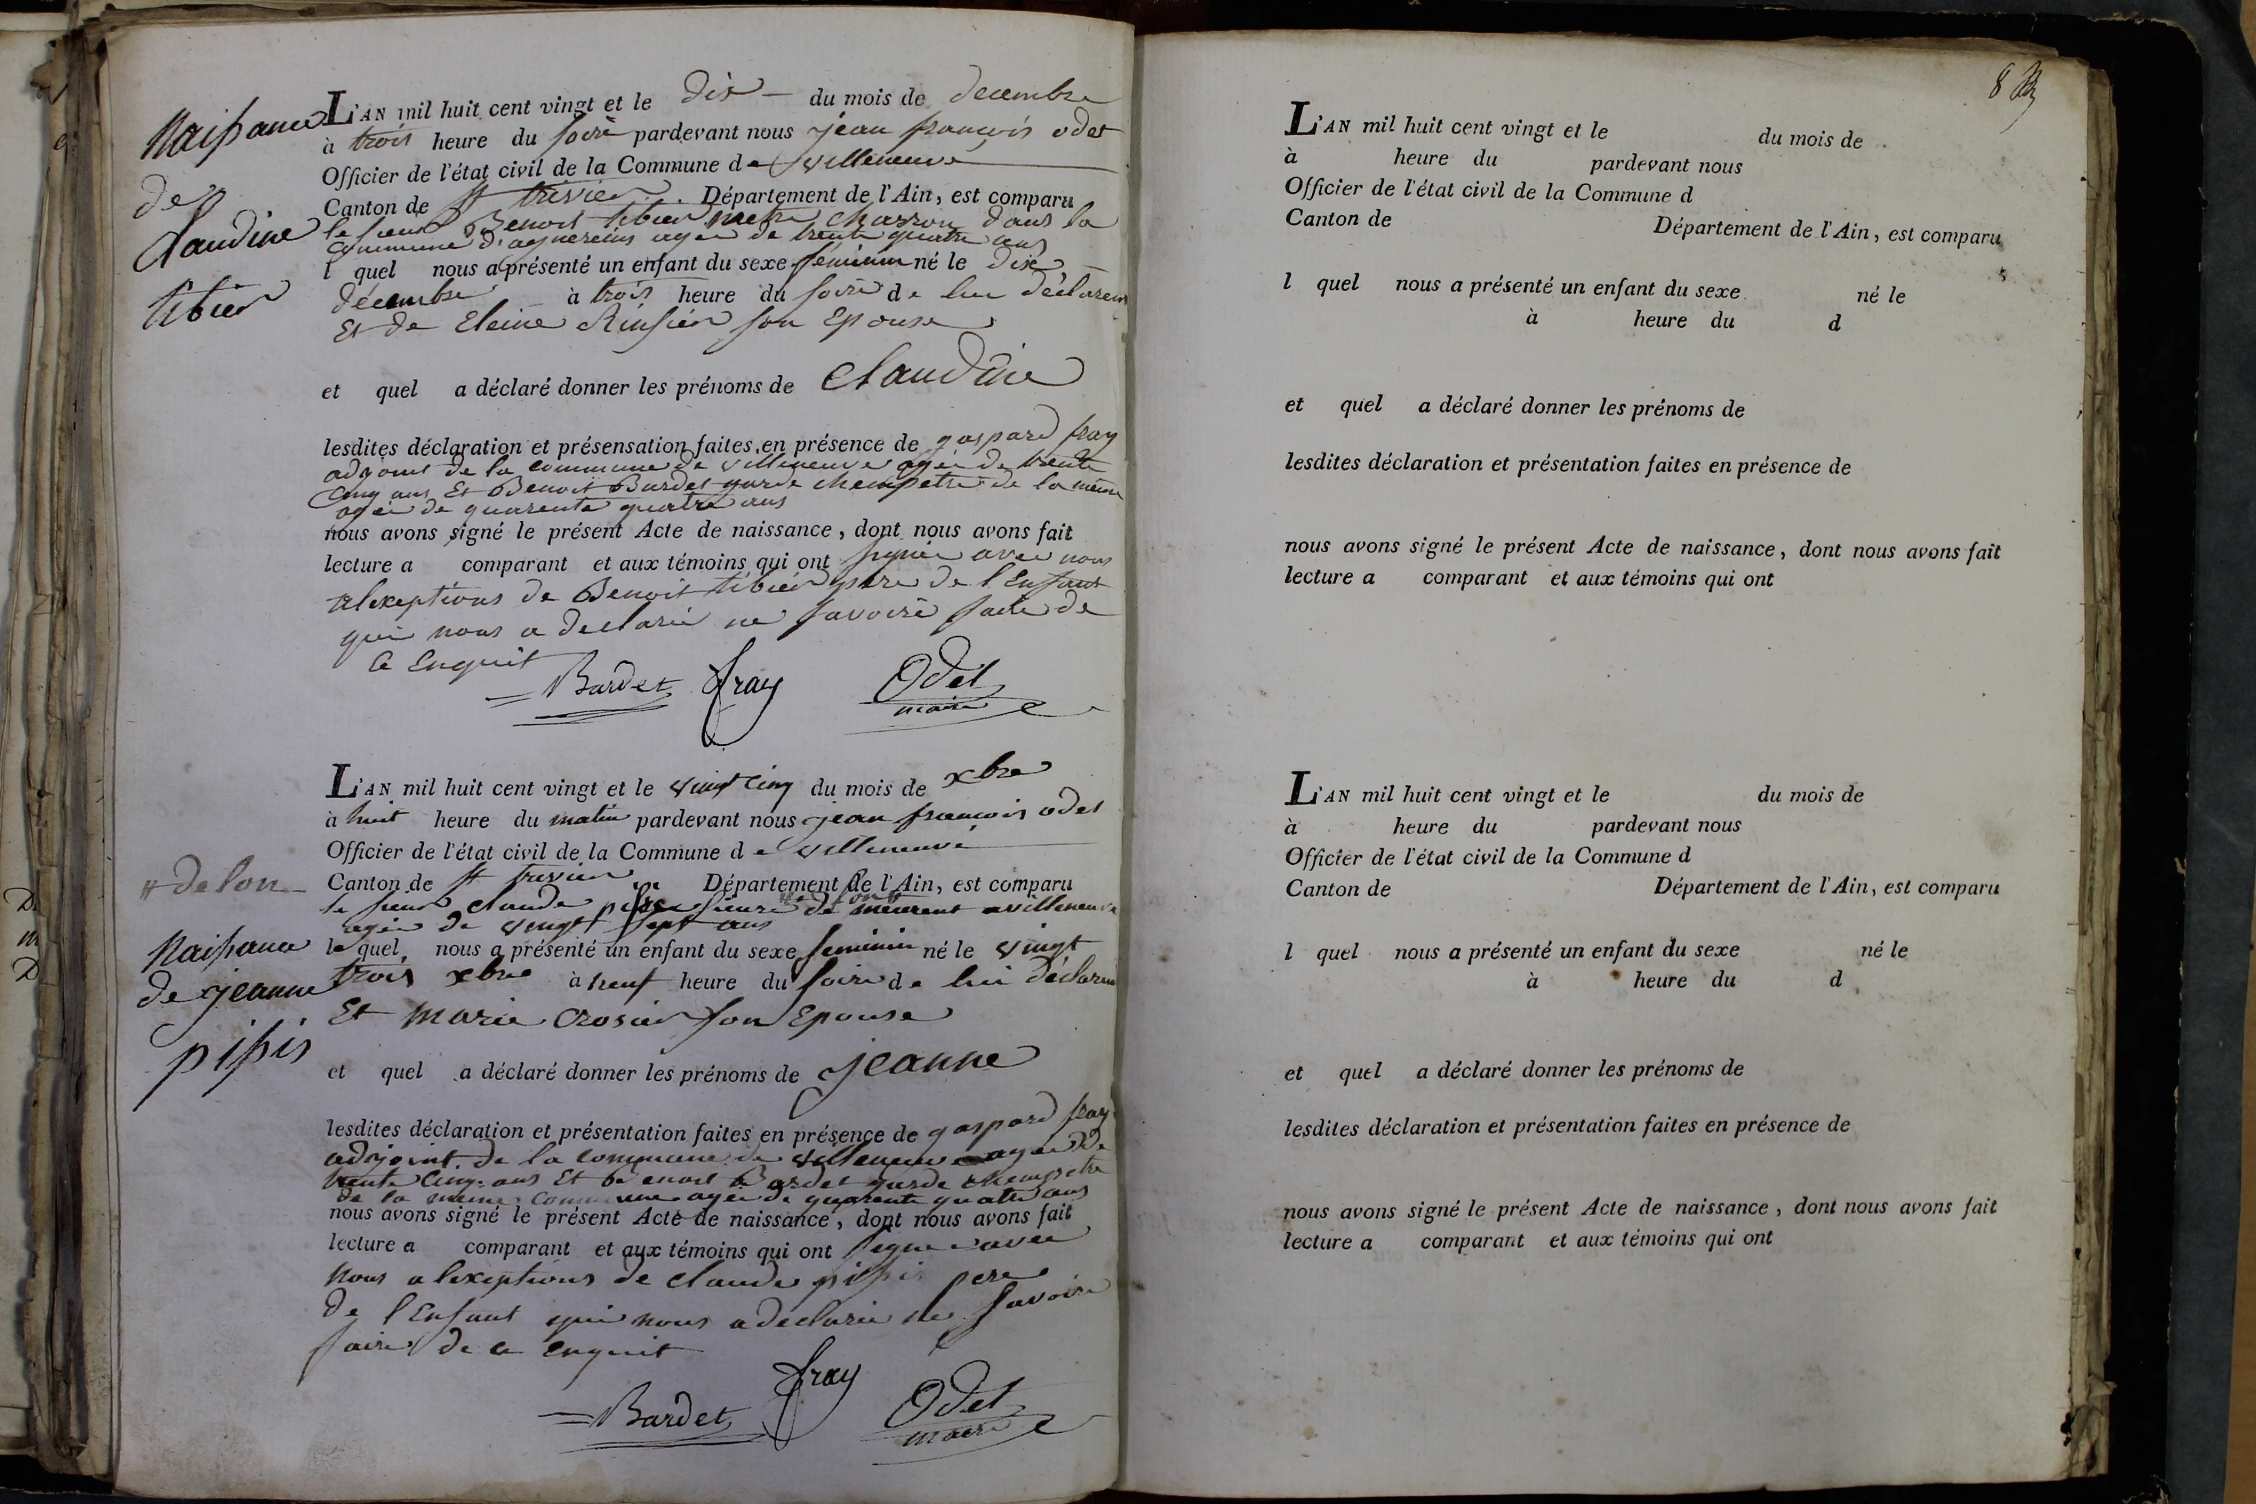 Naissance
de
Claudine
tibier
L'AN mil huit cent vingt et le dix du mois de decembre
à trois heure du soire pardevant nous jean françois odet
Officier de l'état civil de la Commune de villeneuve
Canton de st trivier Département de l'Ain, est comparu
le sieur Benoit tibier metre charron dans la
commune d'agnereins agee de trente quatre ans
l quel nous a présenté un enfant du sexe feminin né le dix
décembre à trois heure du soire de lui déclarent
Et de Eleine son Epouse
et quel a déclaré donner les prénoms de Claudine
lesdites déclaration et présensation faites en présence de gaspard fray
adjoint de la commune de villeneuve agée de trente
cinq ans Et Benoit Bardet garde champetre de la meme
agée de quarente quatre ans
nous avons signé le présent Acte de naissance, dont nous avons fait
lecture a comparant et aux témoins qui ont signée avec nous
alexeptions de Benoit tibier pere de l'Enfant
qui nous a declarée ne savoire faire de
ce Enquit
Bardet fray Odet
maire
# delon
Naissance
de jeanne
pissis
L'AN mil huit cent vingt et le vingt cinq du mois de xbre
à huit heure du matin pardevant nous jean françois odet
Officier de l'état civil de la Commune de villeneuve
Canton de st trivier Département de l'Ain, est comparu
le sieur claude de meurent a villeneuve
agée de vingt sept ans
le quel, nous a présenté un enfant du sexe feminin né le vingt
trois xbre à neuf heure du soire de lui déclarent
Et marie crosier son Epouse
et quel a déclaré donner les prénoms de jeanne
lesdites déclaration et présentation faites en présence de gaspard fray
adjoint de la commune de villeneuve agée de
trente cinq ans Et benoit Bardet garde champetre
de la meme commune agée de quarente quatre ans
nous avons signé le présent Acte de naissance, dont nous avons fait
lecture a comparant et aux témoins qui ont signée avec
nous alexeptions de claude pissis pere
de l'Enfant qui nous a declarée ne savoire
faire de ce enquit
Bardet fray Odet
maire
8
L'AN mil huit cent vingt et le du mois de
à heure du pardevant nous
Officier de l'état civil de la Commune d
Canton de Département de l'Ain, est comparu
l quel nous a présenté un enfant du sexe né le
à heure du d
et quel a déclaré donner les prénoms de
lesdites déclaration et présentation faites en présence de
nous avons signé le présent Acte de naissance, dont nous avons fait
lecture a comparant et aux témoins qui ont
L'AN mil huit cent vingt et le du mois de
à heure du pardevant nous
Officier de l'état civil de la Commune d
Canton de Département de l'Ain, est comparu
l quel nous a présenté un enfant du sexe né le
à heure du d
et quel a déclaré donner les prénoms de
lesdites déclaration et présentation faites en présence de
nous avons signé le présent Acte de naissance, dont nous avons fait
lecture a comparant et aux témoins qui ont